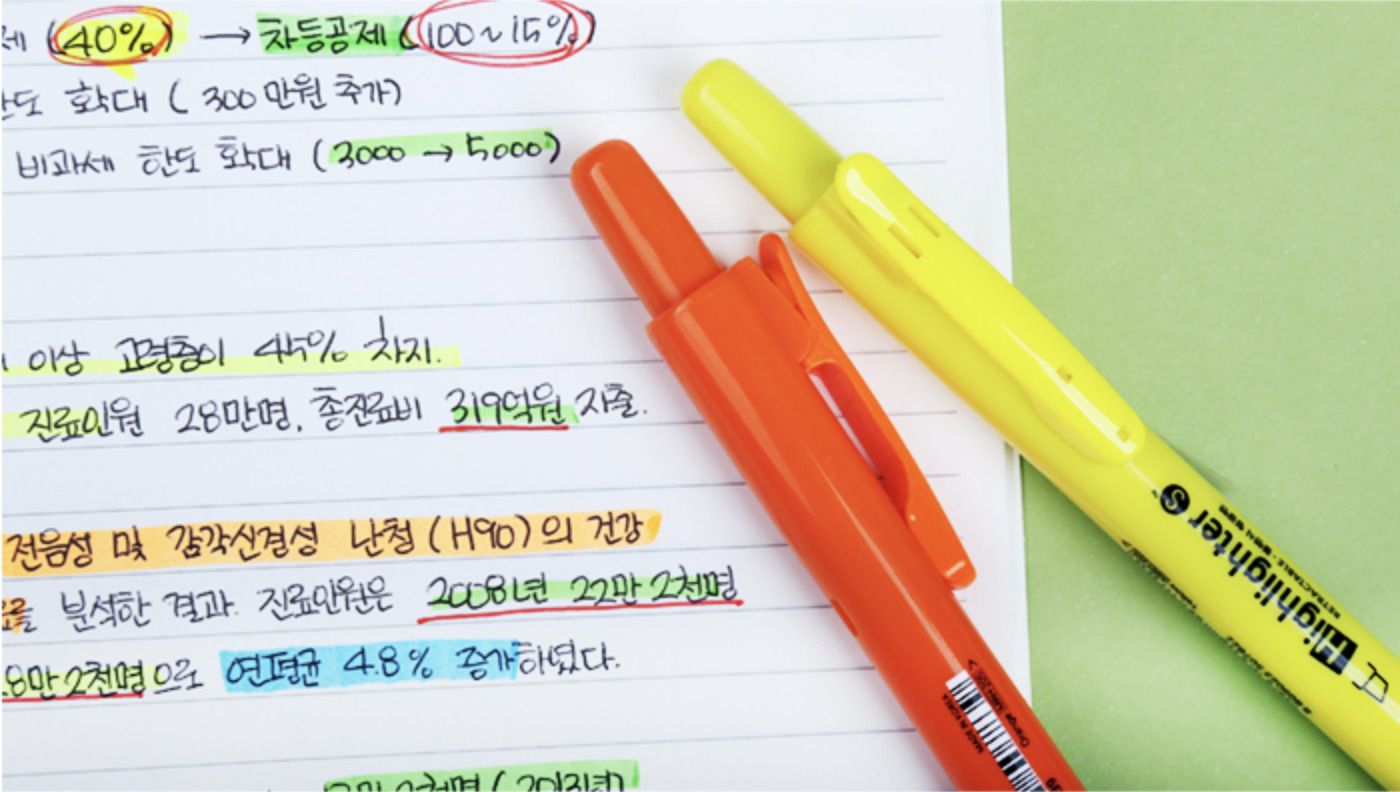 제 (40%) → 차등공제 (100~15%)
한도 확대 ( 300만원 추가)
비과세 한도 확대 (3000 → 5000)
이상 고령층이 45% 차지.
진료인원 28만명, 총진료비 319억원 지출.
전음성 및 감각신경성 난청 (H90) 의 건강
를 분석한 결과. 진료인원은 2008년 22만 2천명
8만 2천명으로 연평균 4.8% 증가하였다.
8만 2천명 (2013년)
Highlighter S
RETRACTABLE
MADE IN KOREA
Orange